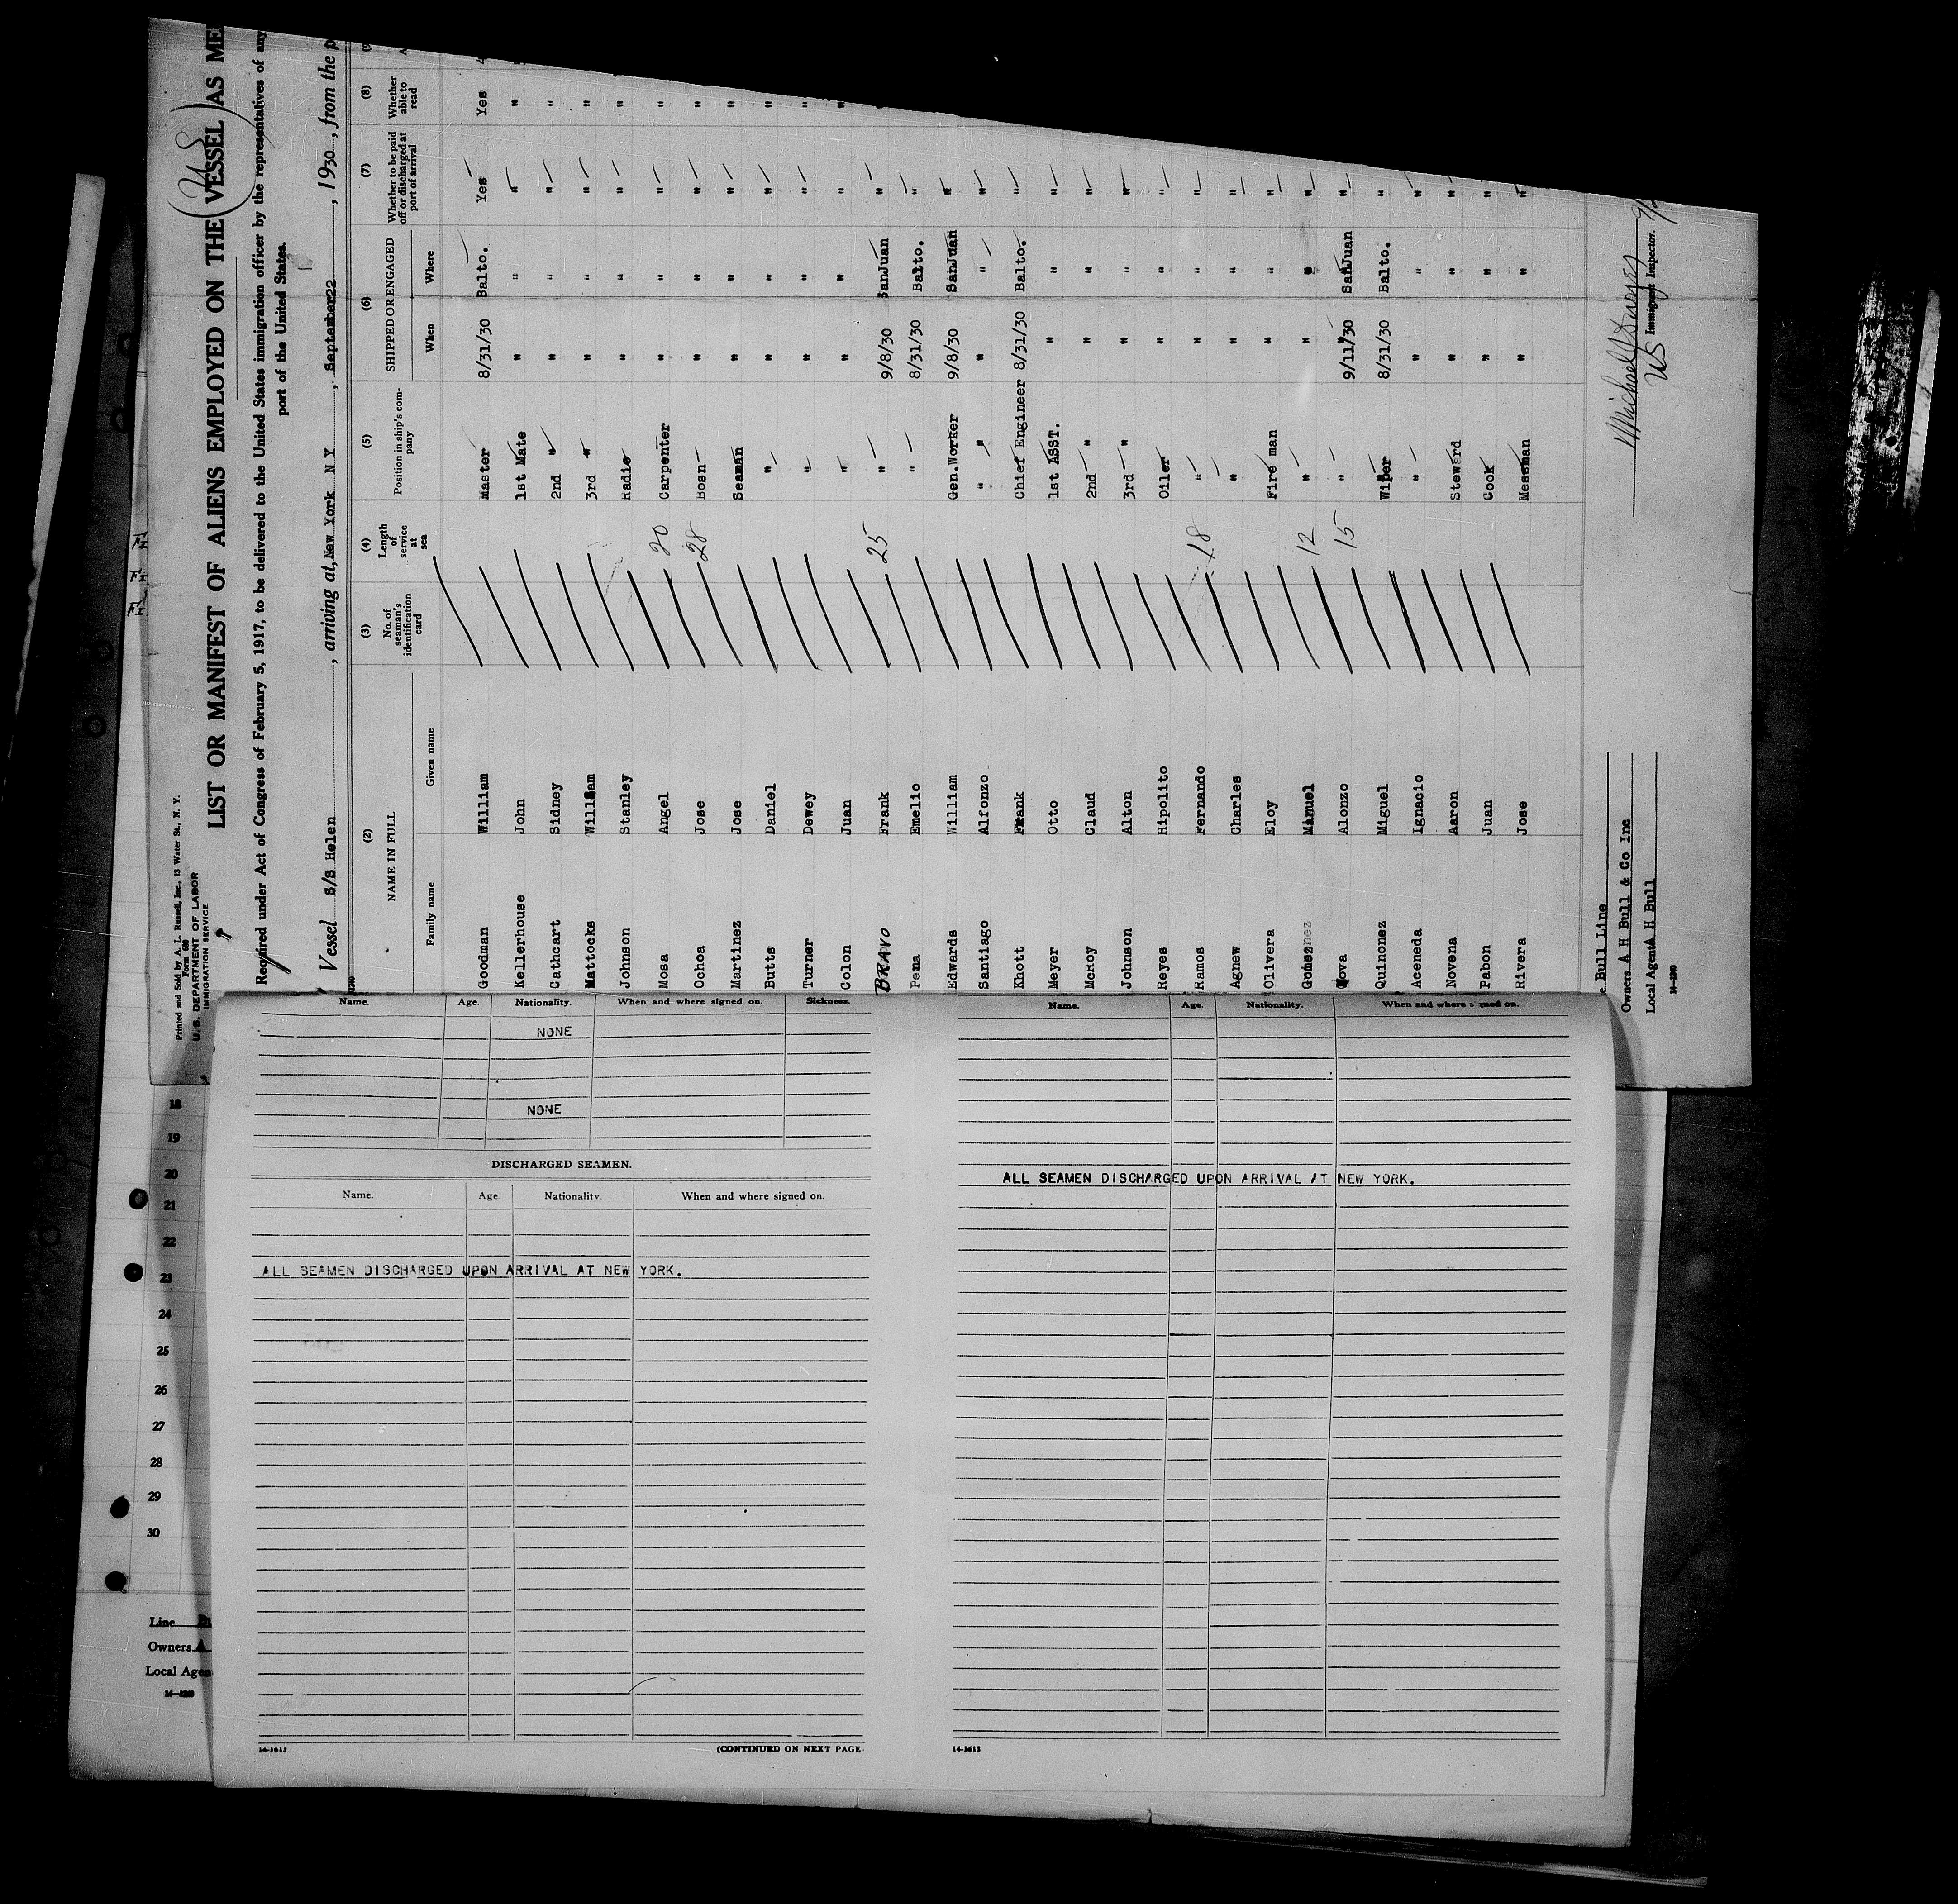 Printed and Sold by A. L. Russell, Inc., 13 Water St., N. Y.
Form 680
U. S. DEPARTMENT OF LABOR
IMMIGRATION SERVICE
(US)
LIST OR MANIFEST OF ALIENS EMPLOYED ON THE VESSEL AS ME
Required under Act of Congress of February 5, 1917, to be delivered to the United States immigration officer by the representatives of any
port of the United States.
Vessel S/S Helen, arriving at, New York N Y, September 22, 1930, from the p
(2) (3) (4) (5) (6) (7) (8)
NAME IN FULL No. of seaman's identification card Length of service at sea Position in ship's company SHIPPED OR ENGAGED Whether to be paid off or discharged at port of arrival Whether able to read
Family name Given name When Where
Goodman William Master 8/31/30 Balto. Yes Yes
Kellerhouse John 1st Mate " " " "
Cathcart Sidney 2nd " " " " "
Mattocks William 3rd " " " " "
Johnson Stanley Radio " " " "
Mosa Angel 20 Carpenter " " " "
Ochoa Jose 28 Bosn " " " "
Martinez Jose Seaman " " " "
Butts Daniel " " " " "
Turner Dewey " " " " "
Colon Juan " " " " "
BRAVO Frank 25 " 9/8/30 SanJuan "
Pena Emelio " 8/31/30 Balto. "
Edwards William Gen.Worker 9/8/30 SanJuan "
Santiago Alfonzo " " " " "
Khott Frank Chief Engineer 8/31/30 Balto. "
Meyer Otto 1st ASST. " " "
McKoy Claud 2nd " " " "
Johnson Alton 3rd " " " "
Reyes Hipolito Oiler " " "
Ramos Fernando 18 " " " "
Agnew Charles " " " "
Olivera Eloy Fire man " " "
Gomez Manuel 12 " " " "
Alonzo 15 " 9/11/30 SanJuan "
Quinonez Miguel Wiper 8/31/30 Balto. "
Aceneda Ignacio " " " "
Novena Aaron Steward " " "
Pabon Juan Cook " " "
Rivera Jose Messman " " "
Bull Line
Owners A H Bull & Co Inc
Local Agents A H Bull
14-1240
US Immigrant Inspector.
Name. Age. Nationality. When and where signed on. Sickness.
NONE
NONE
DISCHARGED SEAMEN.
Name. Age. Nationality. When and where signed on.
ALL SEAMEN DISCHARGED UPON ARRIVAL AT NEW YORK.
14-1613 (CONTINUED ON NEXT PAGE
Name. Age. Nationality. When and where signed on.
ALL SEAMEN DISCHARGED UPON ARRIVAL AT NEW YORK.
14-1613
18
19
20
21
22
23
24
25
26
27
28
29
30
Line
Owners A
Local Agen